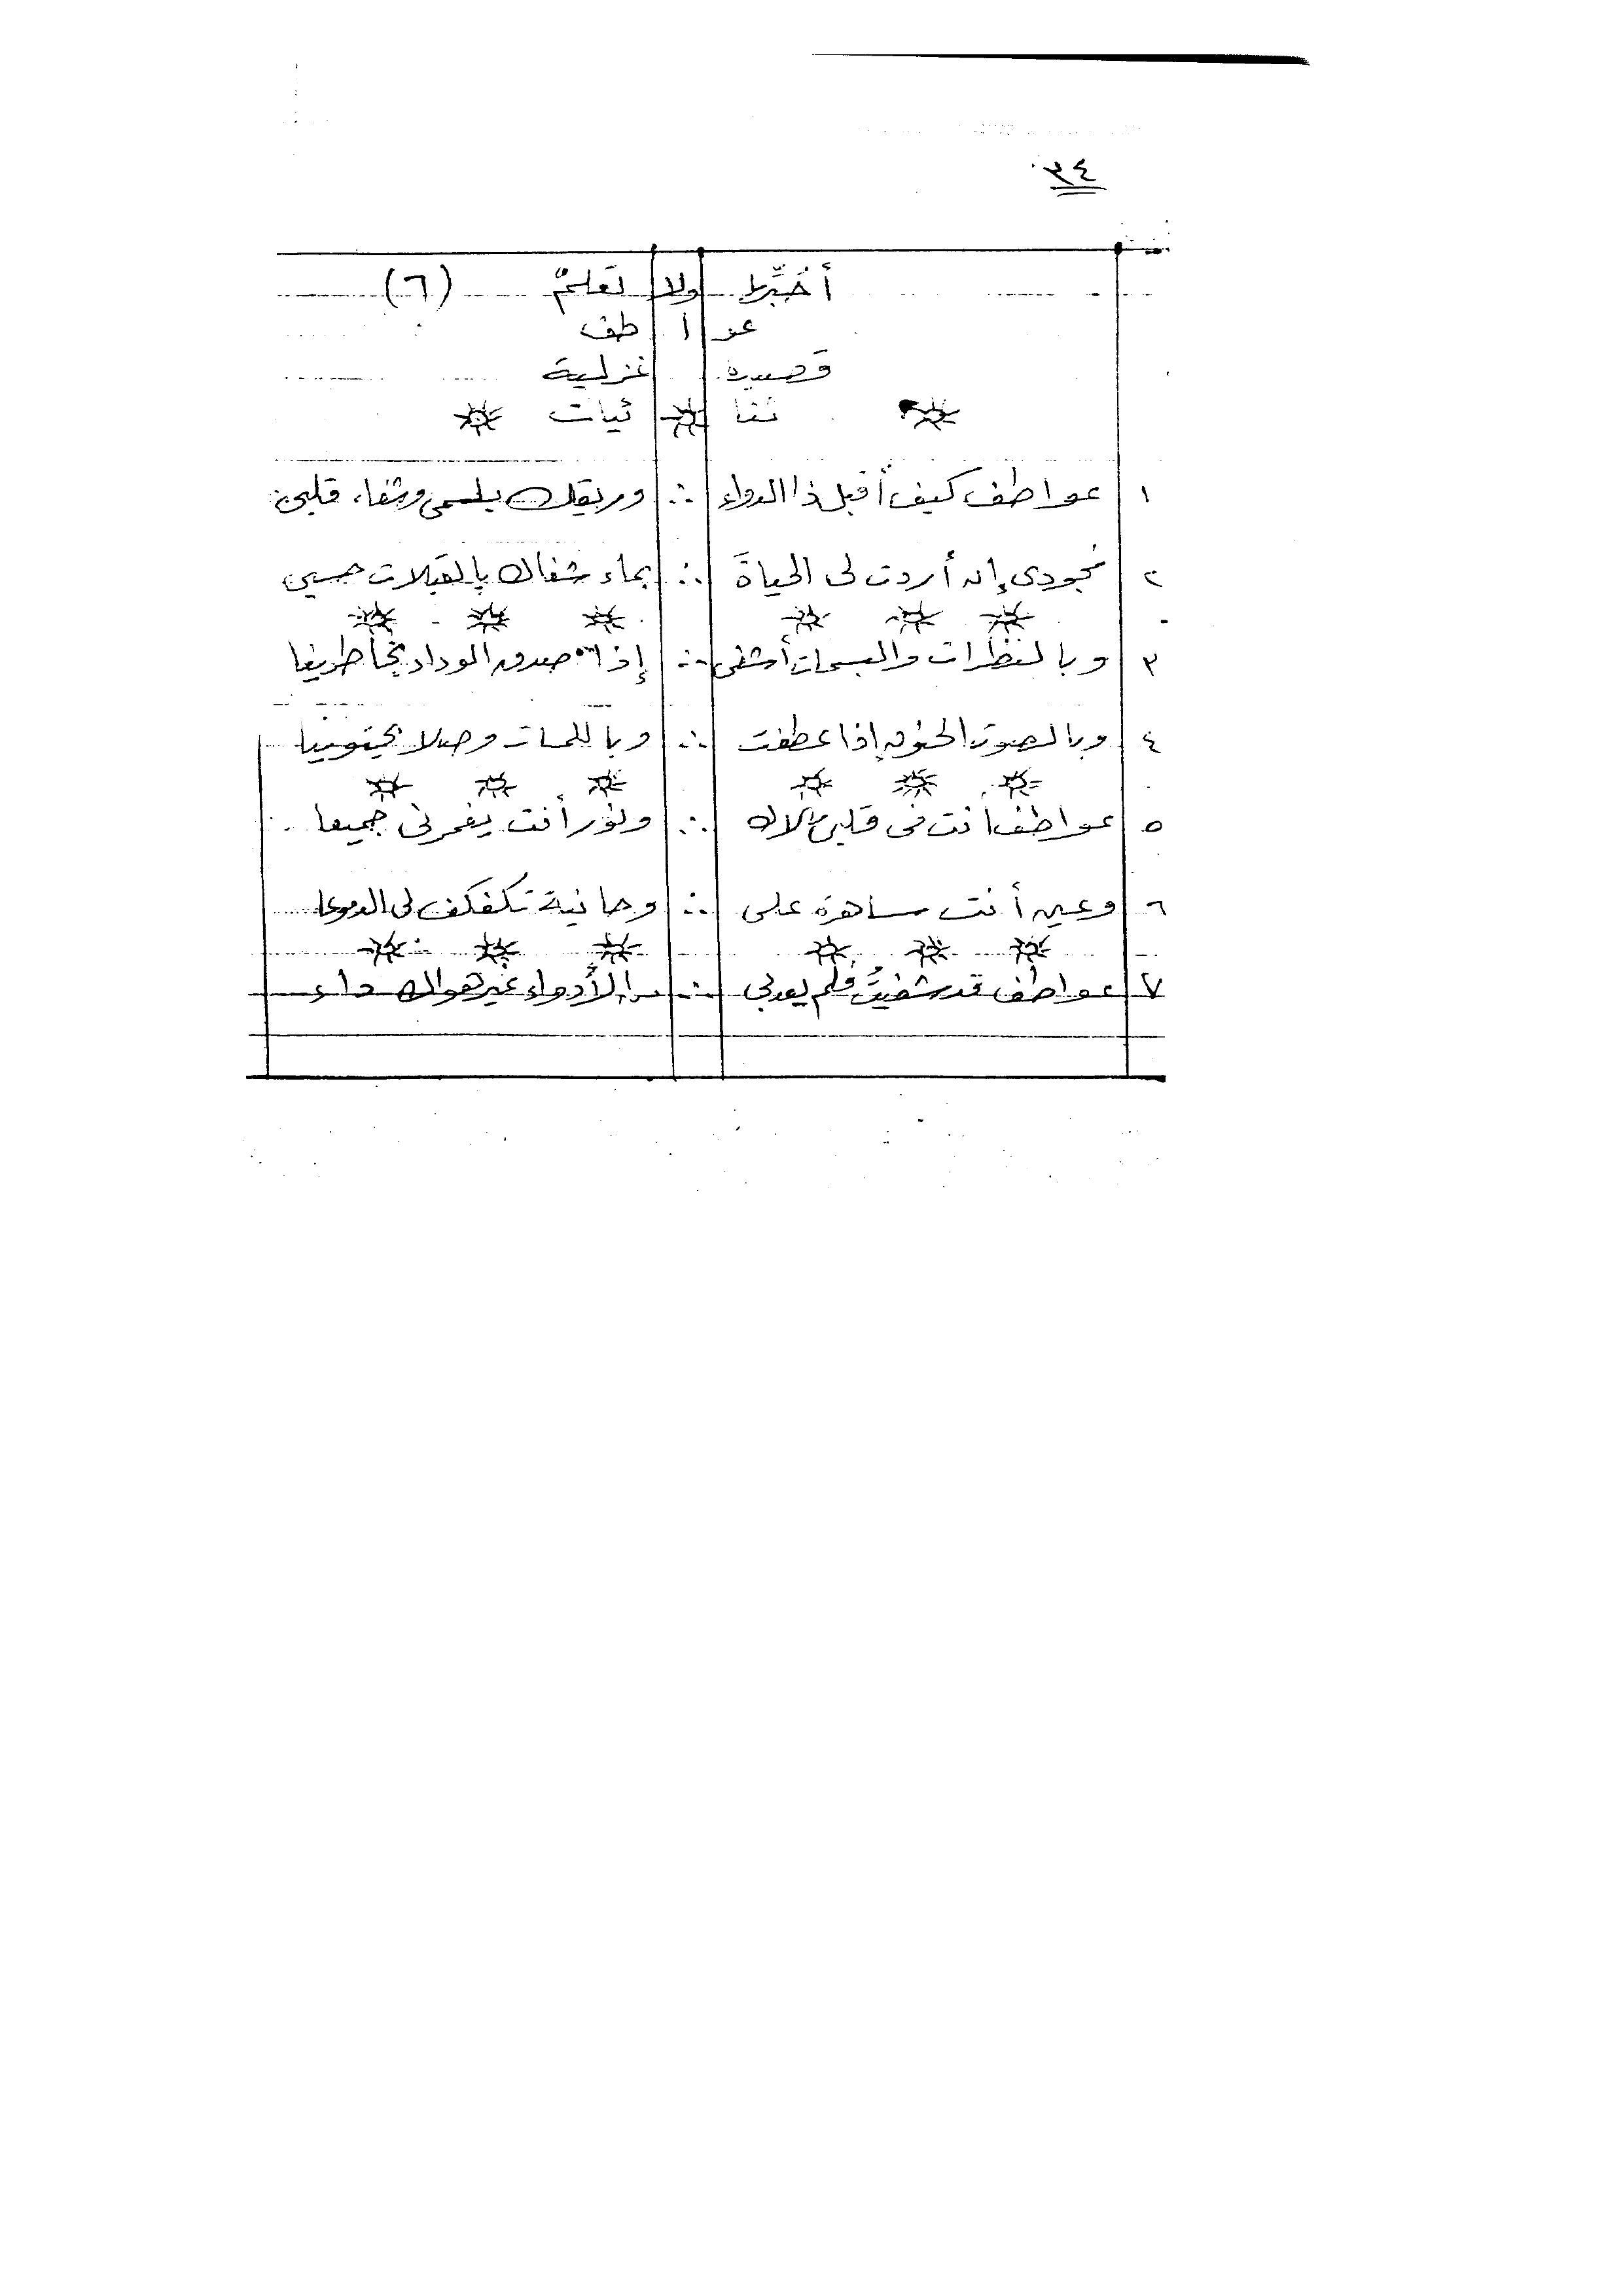 ٣٤
أخبرها ولا تعلمُ (٦)
عواطف
قصيدة غزلية
ثنائيات
١ عواطف كيف أقبل ذا الدواء ∴ وريقك بلسمى وشفاء قلبى
٢ فجودى إن أردت لى الحياةَ ∴ بماء شفاك بالقبلات حسبى
٣ وبالنظرات والبسمات أشفى ∴ إذا صدق الوداد بخاطرينا
٤ وبالصوت الحنون إذا عطفت ∴ وباللمسات وصلا يحتوينا
٥ عواطف أنت فى قلبى ملاك ∴ ونور أنت يغمرنى جميعا
٦ وعين أنت ساهرة على ∴ وحانية تكفكف لى الدموعا
٧ عواطف قد شفيتُ فلم يعد بى ∴ من الأدواء غير هواك داء